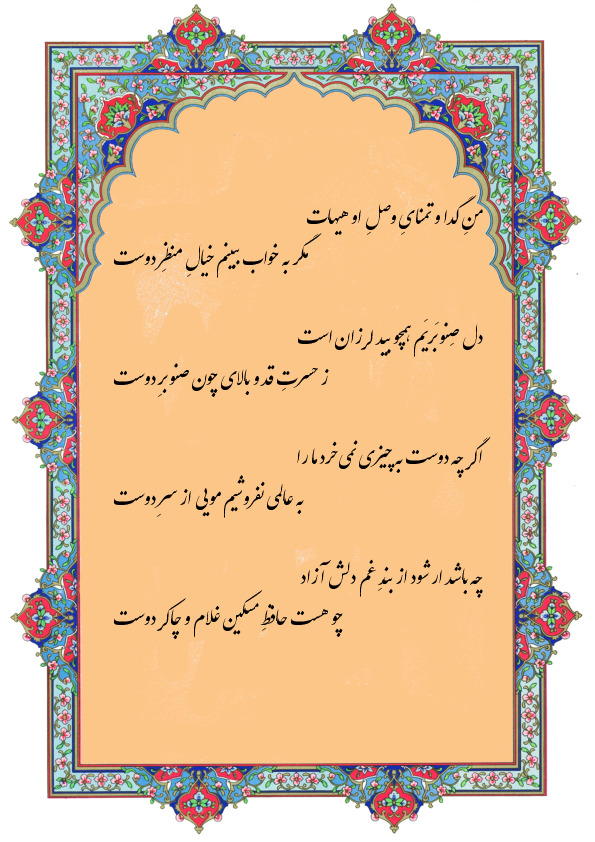 منِ گدا و تمنایِ وصلِ او هیهات
مگر به خواب ببینم خیالِ منظرِ دوست
دل صِنوبَریَم همچو بید لرزان است
ز حسرتِ قد و بالای چون صنوبرِ دوست
اگر چه دوست به چیزی نمی خرد ما را
به عالمی نفروشیم مویی از سرِ دوست
چه باشد ار شود از بندِ غم دلش آزاد
چو هست حافظِ مسکین غلام و چاکر دوست